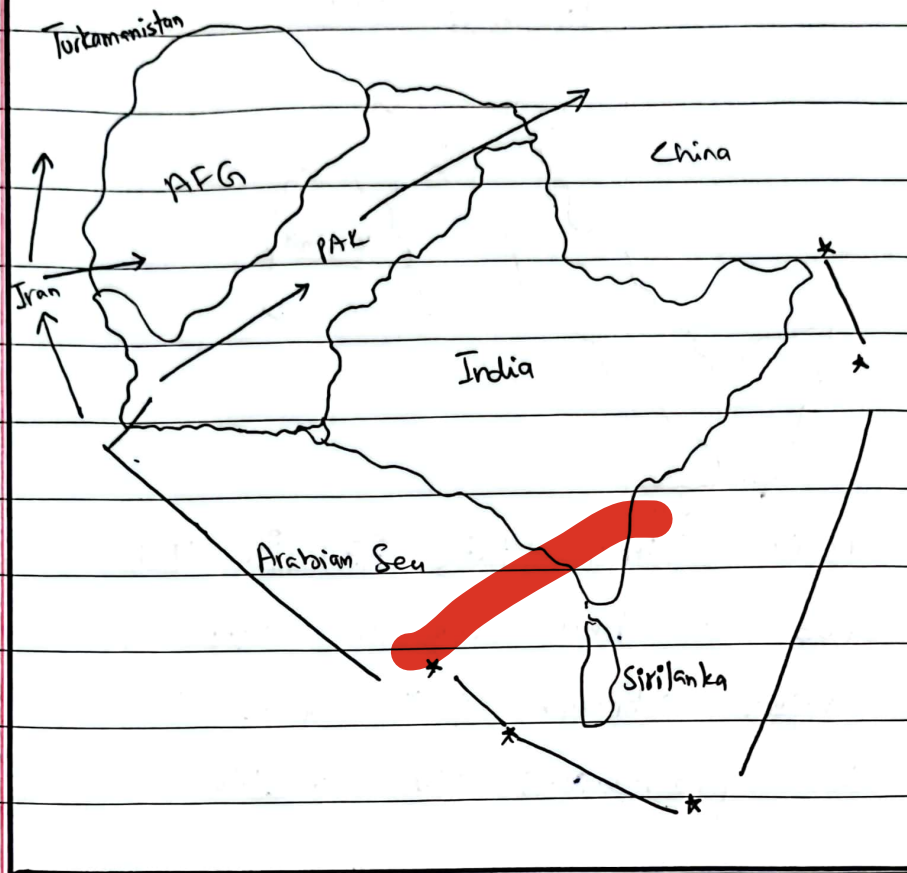 Turkamenistan
AFG
China
PAK
Iran
India
Arabian Sea
Sirilanka